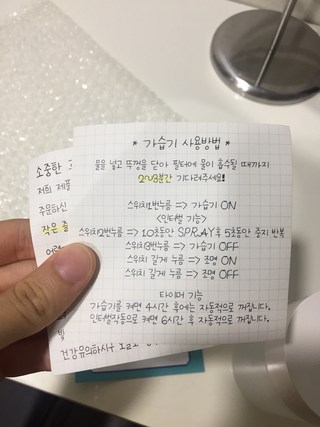 * 가습기 사용방법 *
물을 넣고 뚜껑을 닫아 필터에 물이 흡수될 때까지
2~3분간 기다려주세요!
스위치1번누름 => 가습기 ON
<인터벌 기능>
스위치2번누름 => 10초동안 SPRAY후 5초동안 중지 반복
스위치3번누름 => 가습기 OFF
스위치 길게 누름 => 조명 ON
스위치 길게 누름 => 조명 OFF
타이머 기능
가습기를 켜면 4시간 후에는 자동적으로 꺼집니다.
인터벌작동으로 켜면 6시간 후 자동적으로 꺼집니다.
소중한
저희 제품
주문하신
작은
건강유의하시구